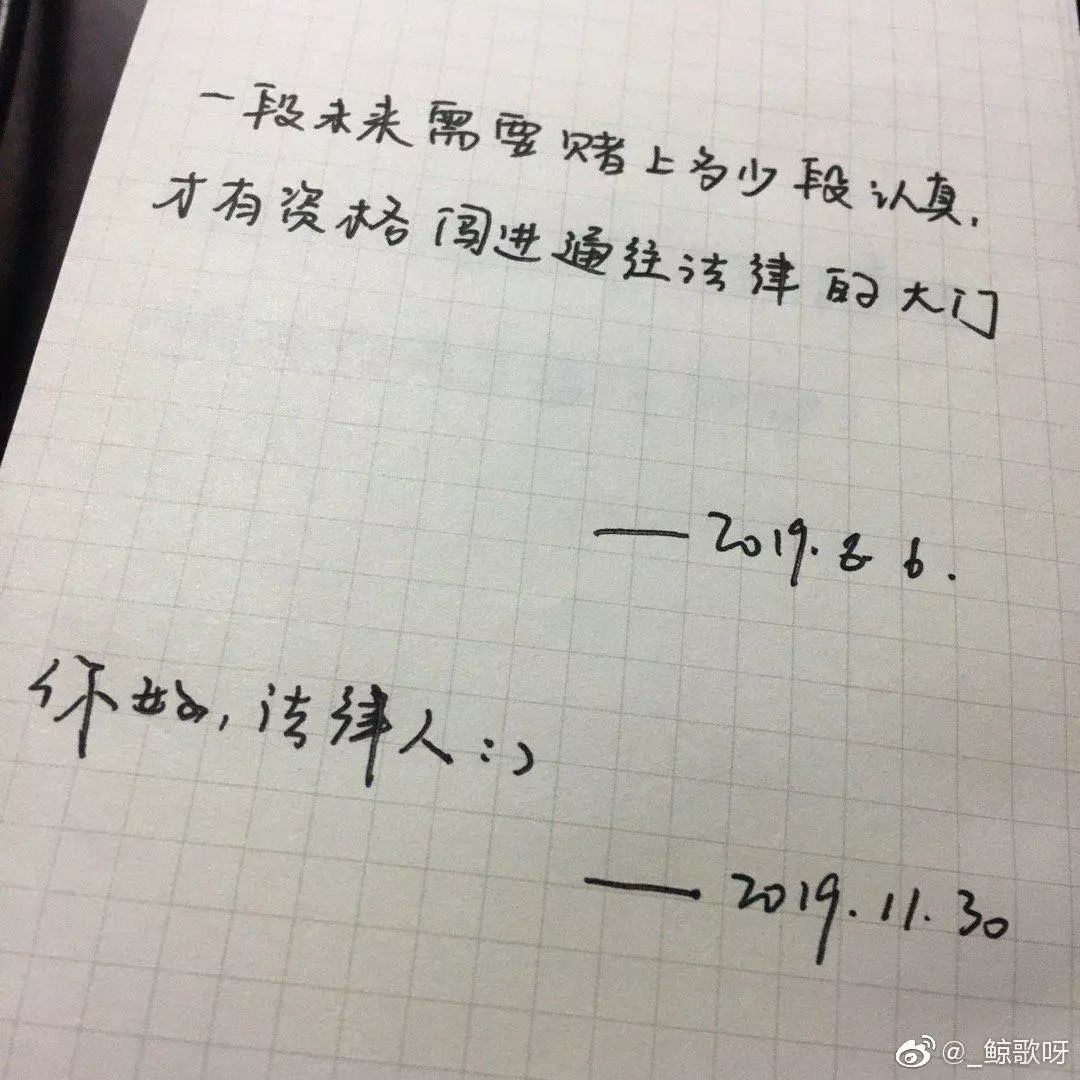 一段未来需要赌上多少段认真.
才有资格闯进通往法律的大门
——2019.8 6.
你好,法律人:)
——2019.11.30
@_鲸歌呀